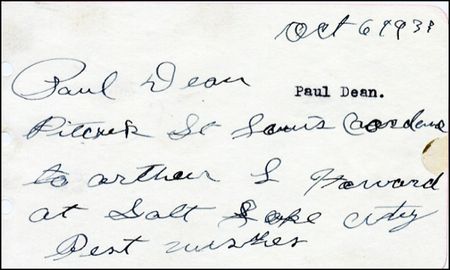 Oct 6 1938
Paul Dean
Paul Dean.
Pitcher St Louis Cardinals
to arthur L Howard
at Salt Lake city
Best wishes